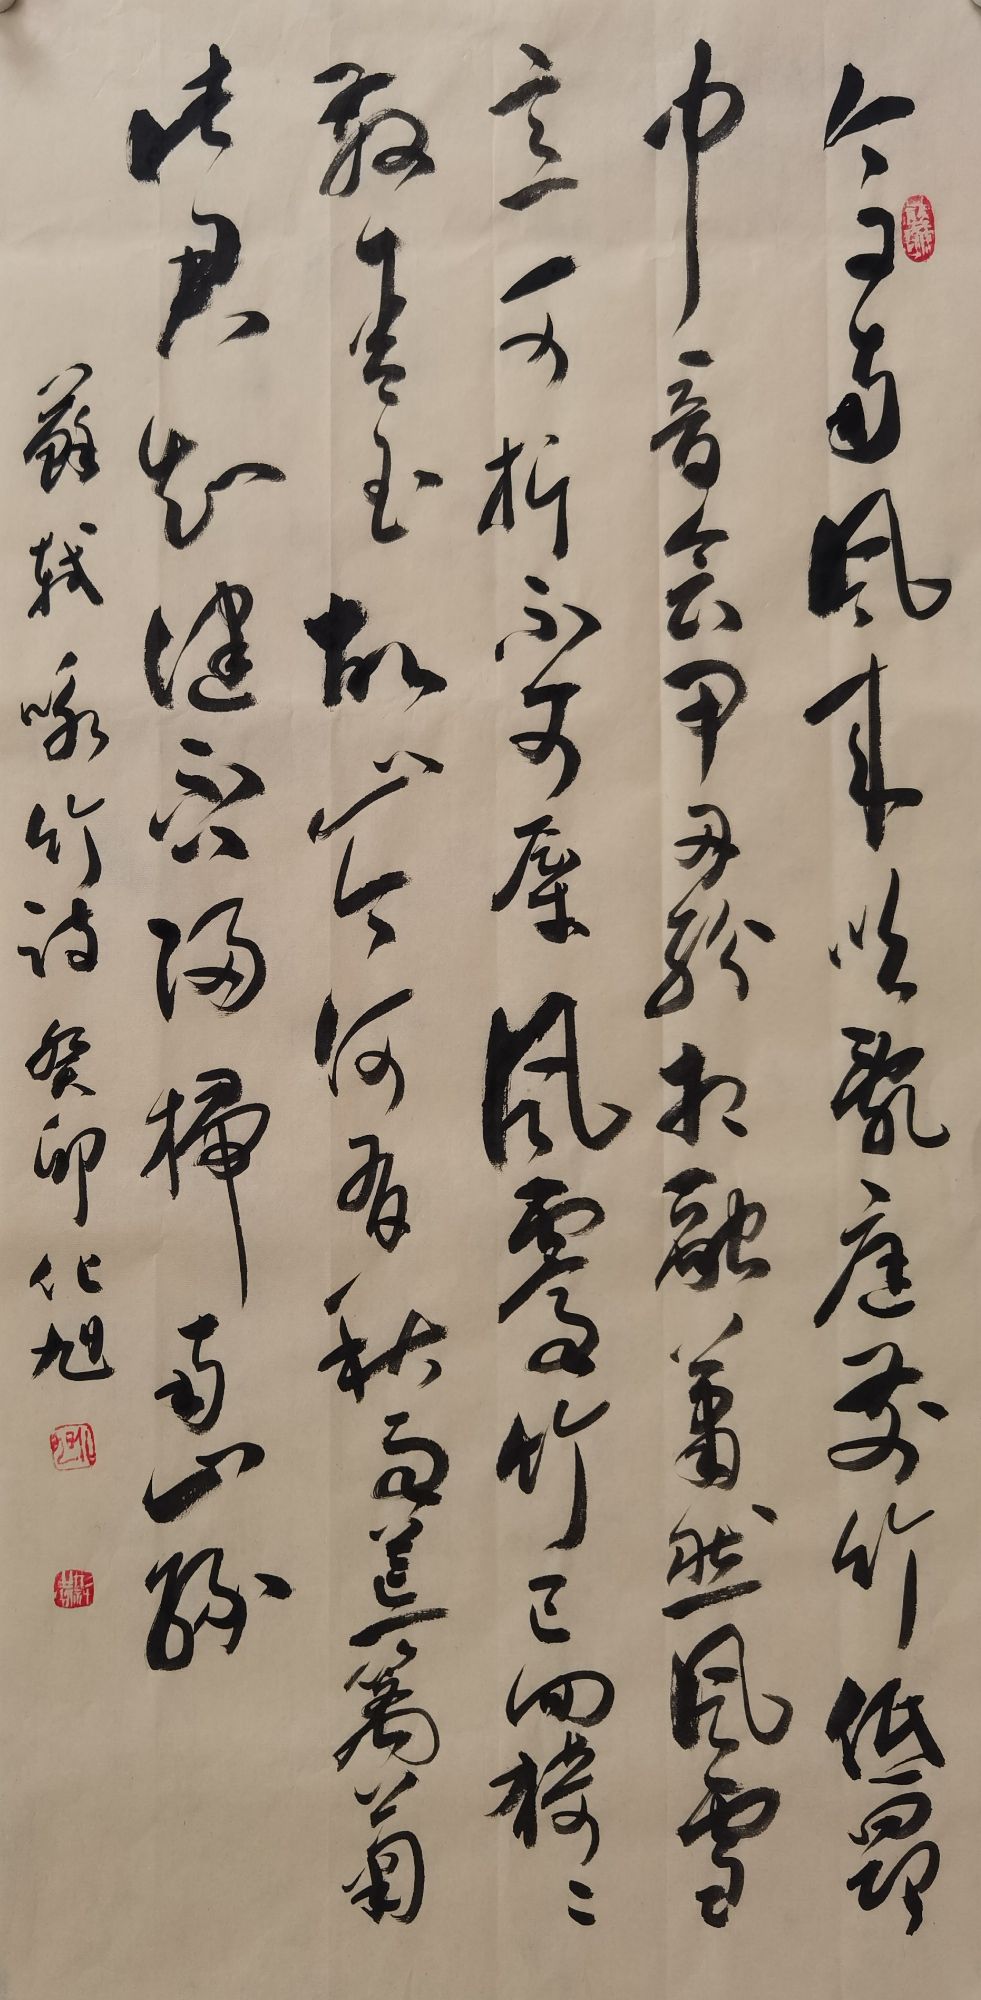 今日南风来吹乱庭前竹低昂
中音会甲刃纷相融萧然风雪
意可折不可辱风霁竹已回猗々
散青玉故山今何有秋雨荒篱菊
此君知健否归掃南山绿
蘇軾咏竹诗癸卯化旭